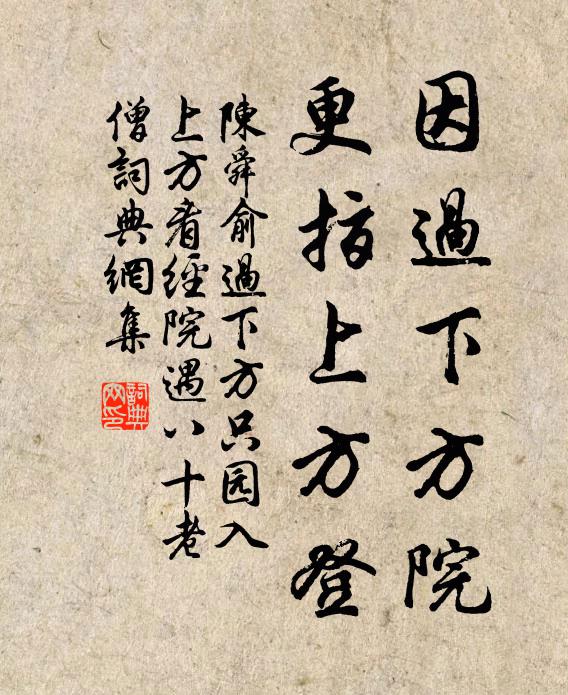 因過下方院
更指上方登
陳舜俞過下方只园入
上方看經院遇八十老
僧詞典網集
詞典
网印